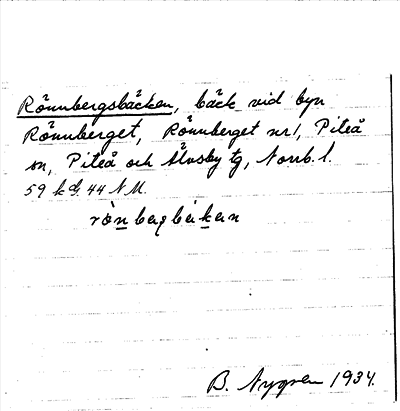 Rönnbergsbäcken, bäck vid byn
Rönnberget, Rönnberget nr 1, Piteå
sn, Piteå och Älvsby tg, Norrb. l.
59 44 N.M.
B. Nygren 1934.